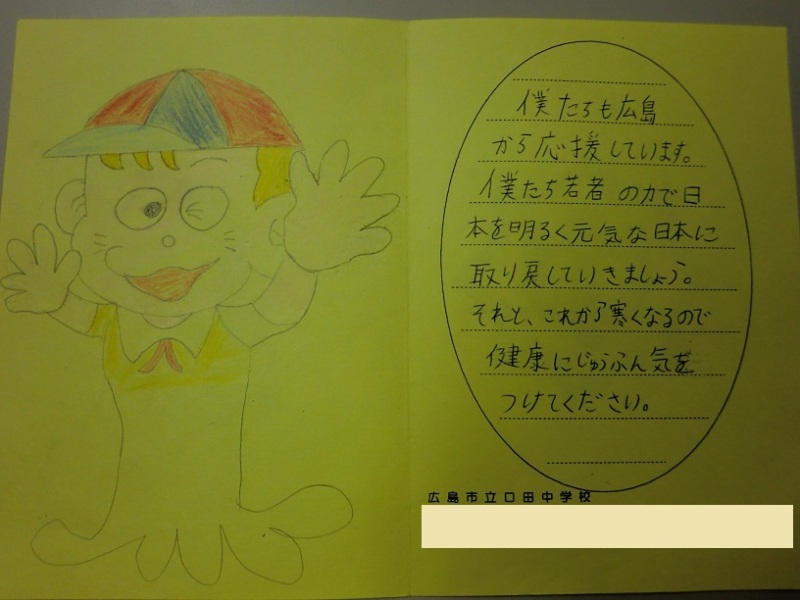 僕たちも広島
から応援しています。
僕たち若者の力で日
本を明るく元気な日本に
取り戻していきましょう。
それと、これから寒くなるので
健康にじゅうふん気を
つけてください。
広島市立口田中学校